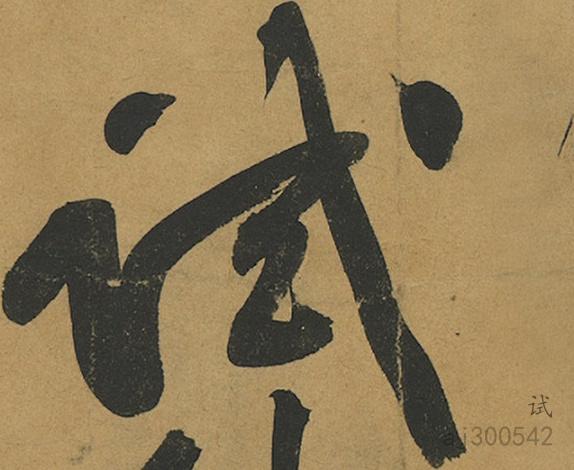 試
试
aj300542